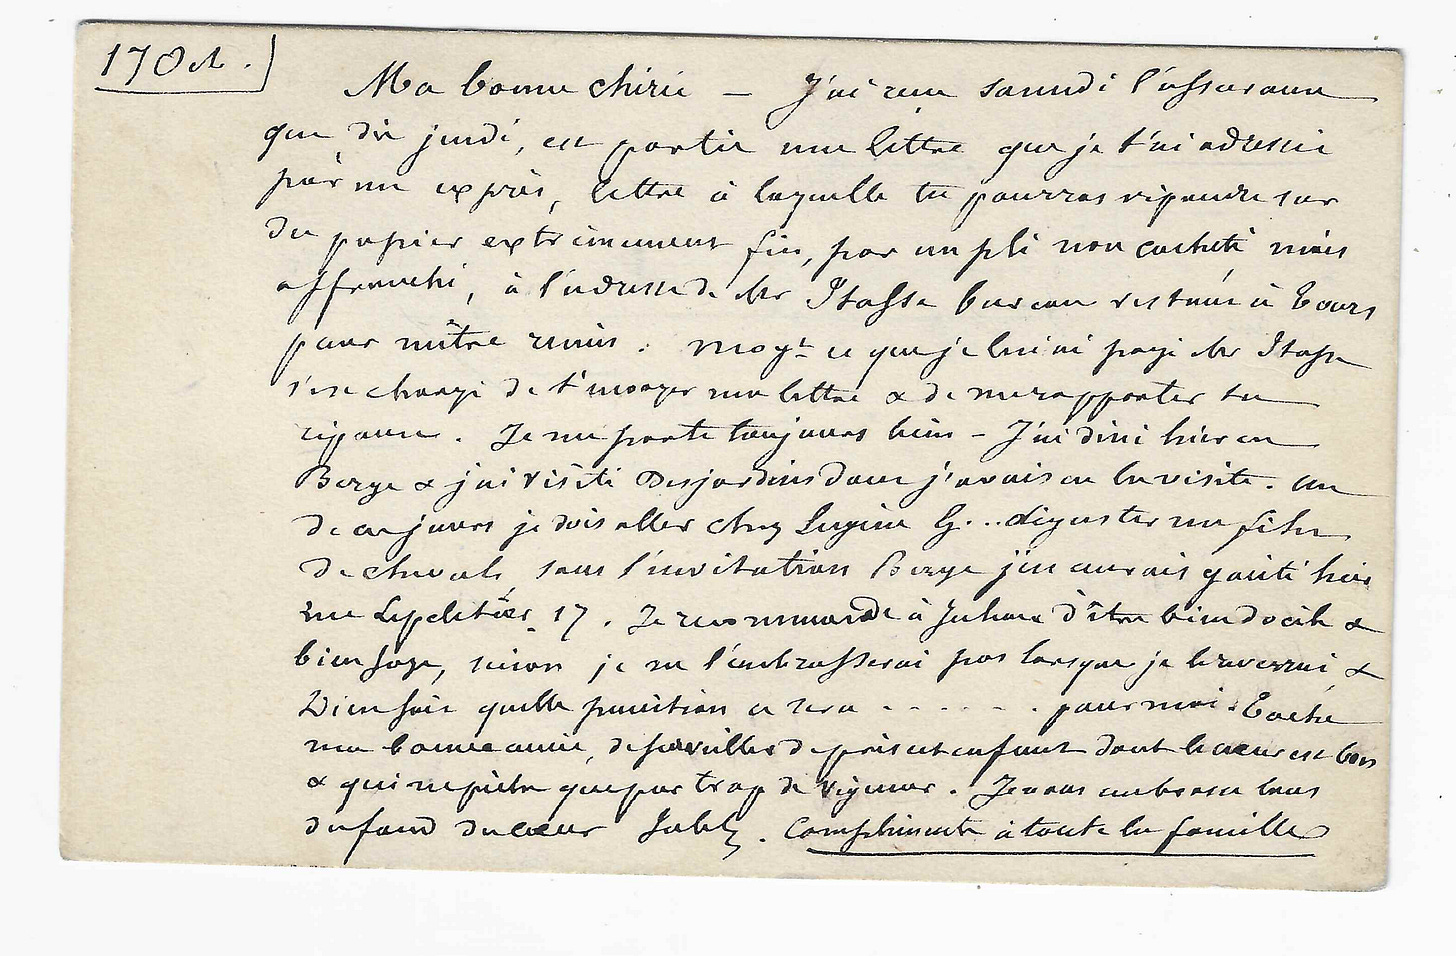 17 Oct.
Ma bonne chérie — J'ai reçu samedi l'assurance
que, dès jeudi, est partie une lettre que je t'ai adressée
par un exprès, lettre à laquelle tu pourras répondre sur
du papier extrêmement fin, par un pli non cacheté mais
affranchi, à l'adresse de Mr Stasse bureau restant à Tours
pour m'être remis. Moyt ce que je lui ai payé Mr Stasse
s'est chargé de t'envoyer ma lettre & de me rapporter ta
réponse. Je me porte toujours bien – J'ai diné hier au
Berge & j'ai visité Desjardins dont j'avais eu la visite. Un
de ces jours je dois aller chez Eugène G... déguster un filet
de cheval, sans l'invitation Berge j'en aurais gouté hier
rue Lepeletier 17. Je recommande à Juliane d'être bien docile &
bien sage, sinon je ne l'embrasserai pas lorsque je la reverrai, &
Dieu sait quelle punition ce sera . . . . . . pour moi. Tache
ma bonne amie, de surveiller de près cet enfant dont le cœur est bon
& qui ne pèche que par trop de vigueur. Je vous embrasse tous
du fond du cœur. Compliments à toute la famille